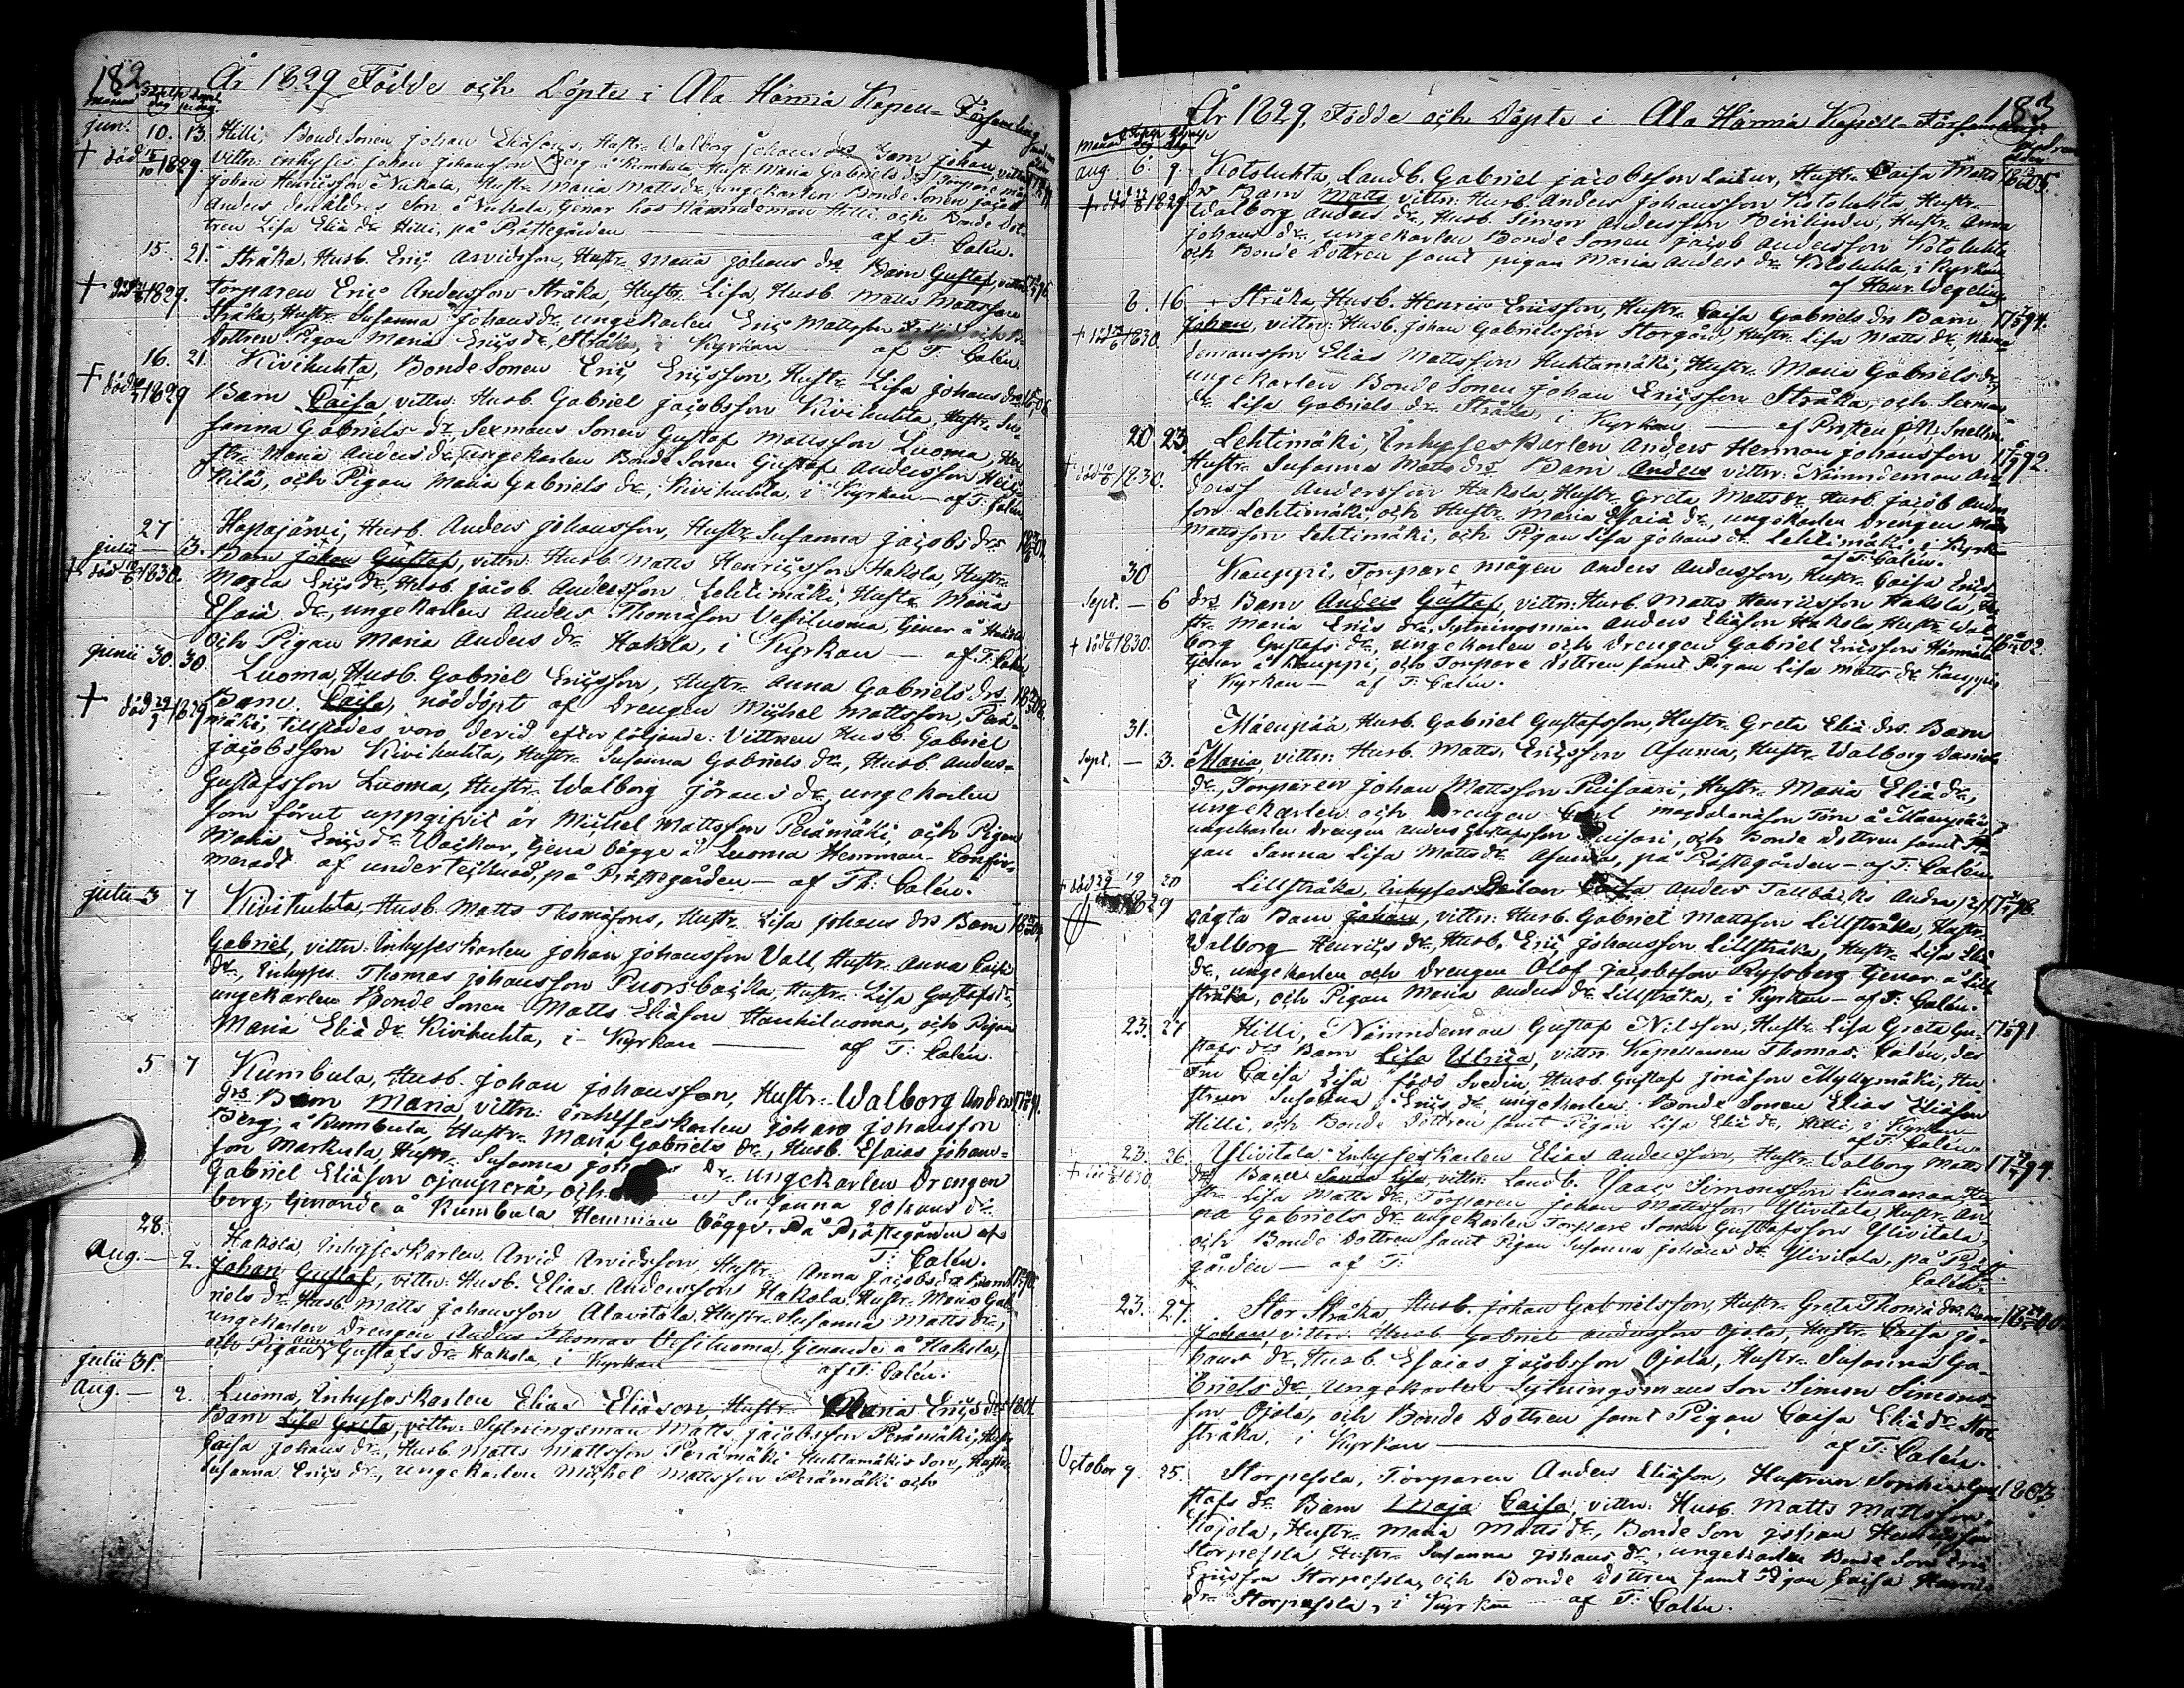 182.
År 1829 Födde och Döpte i Ala Härmä Kapell-Församling
Junii 10. 13. Hilli, Bonde Sonen Johan Eliäson, Hustr. Walborg Johans drs Barn Johan, vittn:
† död 1829. vittn: inhyses Johan Johansson Berg å Kumbula, Hustr. Maria Gabriels dr,
Johan Henricsson å Nukala, Hustr. Maria Matts dr, ungekarlen Bonde Sonen Jacob
Anders den äldres son å Nukala, tjenar hos Nämndeman Hilli, och Bonde Dot-
tren Lisa Eliä dr Hilli, på Prästegården — af T. Calén.
15. 21. Stråka, Husb. Eric Arvidsson, Hustr. Maria Johans drs Barn Gustaf, vittn:
† död 1829. Torparen Eric Andersson Stråka, Hustr. Lisa, Husb. Matts Mattsson
Stråka, Hustr. Susanna Johans dr, ungekarlen Eric Mattsson
Dottren Pigan Maria Erics dr, Stråka, i Kyrkan af T. Calén.
16. 21. Kivihuhta, Bonde Sonen Eric Ericsson, Hustr. Lisa Johans drs
† död 1829 Barn Caisa, vittn: Husb. Gabriel Jacobsson Kivihuhta, Hustr. Su-
sanna Gabriels dr, Sexmans Sonen Gustaf Mattsson Luoma, Hu-
str. Maria Anders dr, ungekarlen Bonde Sonen Gustaf Andersson Heic-
kilä, och Pigan Maria Gabriels dr, Kivihuhta, i Kyrkan — af T. Calén
27 Haapajärvi, Husb. Anders Johansson, Hustr. Susanna Jacobs drs
Julii — 3. Barn Johan Gustaf, vittn: Husb. Matts Henricsson Hakola, Hustr.
† död 1830. Magla Erics dr, Husb. Jacob Andersson Lehtimäki, Hustr. Maria
Esaiä dr, ungekarlen Anders Thomäson Vesiluoma, tjenar å Hakola
och Pigan Maria Anders dr Hakola, i Kyrkan — af T. Calén
Junii 30. 30. Luoma, Husb. Gabriel Ericsson, Hustr. Anna Gabriels drs
† död 1829 Barn. Caisa, nöddöpt af Drengen Michel Mattsson, Perä-
mäki, tillstädes voro dervid efter följande: Vittnen Husb. Gabriel
Jacobsson Kivihuhta, Hustr. Susanna Gabriels dr, Husb. Anders
Gustafsson Luoma, Hustr. Walborg Jörans dr, ungekarlen
som förut uppgifvit är Michel Mattsson Perämäki, och Pigan
Maria Erics dr Wacker, tjena bägge å Luoma Hemman. Confir-
meradt af undertecknad, på Prästegården — af Th: Calén.
Julii — 3 7 Kivihuhta, Husb. Matts Thomäsons, Hustr. Lisa Johans drs Barn
Gabriel, vittn: Inhyseskarlen Johan Johansson Vall, Hustr. Anna Caisa
dr, Inhyses Thomas Johansson Puorsbacka, Hustr. Lisa Gustafs dr,
ungekarlen Bonde Sonen Matts Eliäson Hanhiluoma, och Pigan
Maria Eliä dr Kivihuhta, i Kyrkan — af T: Calén.
5 7 Kumbula, Husb. Johan Johansson, Hustr. Walborg Anders
drs Barn Maria, vittn: Inhyseskarlen Johan Johansson
Berg, å Kumbula, Hustr. Maria Gabriels dr, Husb. Esaias Johans-
son Markula, Hustr. Susanna Joh dr ungekarlen Drengen
Gabriel Eliäson Ojanperä, och Susanna Johans dr
berg, tjenande å Kumbula Hemman bägge. På Prästegården af
T: Calén.
28. Hakola, Inhyseskarlen Arvid Arvidsson, Hustr. Anna Jacobs drs Barn
Aug. — 2. Johan Gustaf, vittn: Husb. Elias Andersson Hakola, Hustr. Maria Gab-
riels dr Husb. Matts Johansson Alavitala, Hustr. Susanna Matts dr,
ungekarlen Drengen Anders Thomas Vesiluoma, tjenande å Hakola,
och Pigan Anna Gustafs dr Hakola, i Kyrkan — af T: Calén.
Julii 31.
Aug. — 2. Luoma, Inhyseskarlen Elias Eliäson, Hustr. Maria Erics drs 1801
Barn Lisa Greta, vittn: Sytningsman Matts Jacobsson Perämäki, Hustr.
Caisa Johans dr, Husb. Matts Mattsson Perämäki Huhtamäkis Son, Hustr.
Susanna Erics dr, ungekarlen Michel Mattsson Perämäki och
183
År 1829, Födde och döpte i Ala Härmä Kapell-Församling
Aug. 6. 9. Kotoluhta, Landb. Gabriel Jacobsson Laitur, Hustr. Caisa Matts 1805.
† död 1829 drs Barn Matts vittn: Husb. Anders Johansson Kotoluhta, Hustr.
Walborg Anders dr, Husb. Simon Andersson, Hustr. Anna
Johans dr, ungekarlen Bonde Sonen Jacob Andersson Kotoluhta
och Bonde Dottren samt pigan Maria Anders dr Kotoluhta, i Kyrkan
af Henr. Wegelius
8. 16 Stråka, Husb. Henric Ericsson, Hustr. Caisa Gabriels drs Barn
† död 1830. Johan, vittn: Husb. Johan Gabrielsson Storgård, Hustr. Lisa Matts dr, Näm-
demansson Elias Mattsson Huhtamäki, Hustr. Maria Gabriels dr,
ungekarlen Bonde Sonen Johan Ericsson Stråka, och Sexmans
dr Lisa Gabriels dr Stråka i Kyrkan — af Prosten
20. 23. Lehtimäki, Inhyseskarlen Anders Herman Johansson
† död 1830. Hustr. Susanna Matts drs Barn Anders vittn: Nämndeman An-
ders Andersson Hakola, Hustr. Greta Matts dr Husb. Jacob Anders-
son Lehtimäki, och Hustr. Maria Esaiä dr, ungekarlen Drengen Matts
Mattsson Lehtimäki, och Pigan Lisa Johans dr Lehtimäki i Kyrkan
af T: Calén.
30 Kauppi, Torpare mågen Anders Andersson, Hustr. Caisa Erics
Sept. — 6 drs Barn Anders Gustaf, vittn: Husb. Matts Henricsson Hakola, Hu-
† död 1830. str. Maria Erics dr, Sytningsman Anders Eliäson Hakola Hustr. Wal-
borg Gustafs dr, ungekarlen och Drengen Gabriel Ericsson Härmälä
tjenar å Kauppi, och Torpare Dottren samt Pigan Lisa Matts dr Kauppi
i Kyrkan — af T: Calén.
31. Mäenpää, Husb. Gabriel Gustafsson, Hustr. Greta Eliä drs Barn
Sept. — 3. Maria, vittn: Husb. Matts Ericsson Asunta, Hustr. Walborg Daniels
dr, Torparen Johan Mattsson Puisaari, Hustr. Maria Eliä dr,
ungekarlen och Drengen Carl Magdalenason Törn å Mäenpää,
ungekarlen Drengen Anders Gustafsson Puisari, och Bonde Dottren samt Pi-
gan Sanna Lisa Matts dr Asunta, på Prästegården — af T: Calén
† död 1829 19 20 Lillstråka, Inhyses Enkan Caisa Anders Tallbacks Andra
äkta Barn Johan, vittn: Husb. Gabriel Mattsson Lillstråka, Hustr.
Walborg Henrics dr, Husb. Eric Johansson Lillstråka, Hustr. Lisa Eliä
dr, ungekarlen och Drengen Olof Jacobsson Ryssberg tjenar å Lill
stråka, och Pigan Maria Anders dr Lillstråka, i Kyrkan — af T: Calén.
23. 27 Hilli, Nämndeman Gustaf Nilsson, Hustr. Lisa Greta Gu- 1791
stafs drs Barn Lisa Ulrica, vittn: Kapellanen Thomas Calén, des
Fru Caisa Lisa född Svedin, Husb. Gustaf Jonäson Myllymäki, Hu-
strun Susanna Erics dr, ungekarlen Bonde Sonen Elias Eliäson
Hilli, och Bonde Dottren samt Pigan Lisa Eliä dr, Hilli, i Kyrkan —
af T: Calén
23. 26. Ylivitala Inhyseskarlen Elias Andersson, Hustr. Walborg Matts
† död 1830 drs Barn Sanna Lisa, vittn: Landb. Isaac Simonsson Linnamaa, Hu-
str. Lisa Matts dr, Torparen Johan Mattsson Ylivitala, Hustr. An-
na Gabriels dr ungekarlen Torpare Sonen Gustafsson Ylivitala,
och Bonde Dottren samt Pigan Susanna Johans dr Ylivitala, på Präst-
gården — af T:
Calén.
23. 27. Stor Stråka, Husb. Johan Gabrielsson, Hustr. Greta Thomä drs Barn
Johan, vittn: Husb. Gabriel Andersson Ojala, Hustr. Caisa Jo-
hans dr, Husb. Esaias Jacobsson Ojala, Hustr. Susanna Ga-
briels dr, ungekarlen Sytningsmans Son Simon Simons-
son Ojala, och Bonde Dottren samt Pigan Caisa Eliä dr Stor
stråka, i Kyrkan — af T: Calén.
October 9. 25. Storpesola, Torparen Anders Eliäson, Hustrun Sophia Gu- 1803
stafs dr Barn Maja Caisa, vittn: Husb. Matts Mattsson
Kojola, Hustr. Maria Matts dr, Bonde Son Johan Henricsson
Storpesola, Hustr. Susanna Johans dr, ungekarlen Bonde Son Eric
Ericsson Storpesola, och Bonde Dottren samt Pigan Caisa Henrics
dr Storpesola, i Kyrkan — af T: Calén.